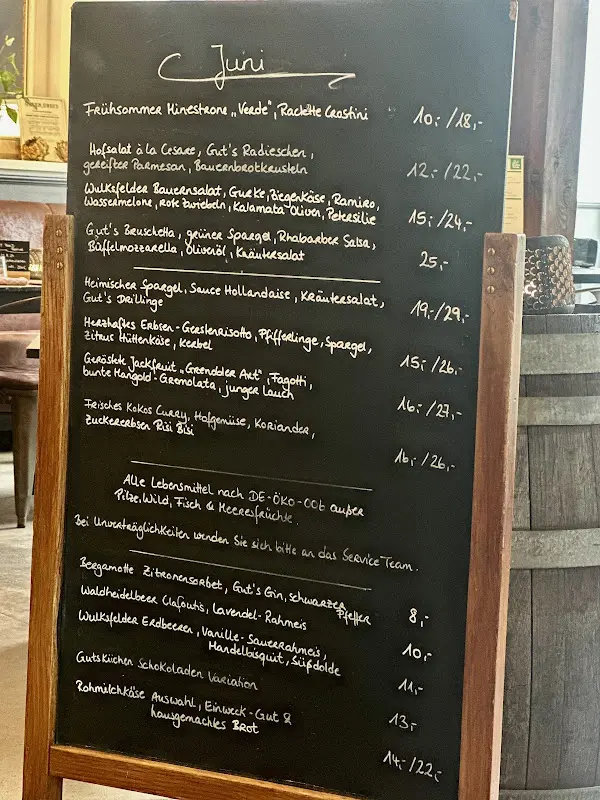 Juni
Frühsommer Minestrone „Verde“, Raclette Crostini 10.-/18,-
Hofsalat à la Cesare, Gut's Radieschen,
gereifter Parmesan, Bauernbrotkrusteln 12.-/22,-
Wulksfelder Bauernsalat, Gurke, Ziegenkäse, Ramiro,
Wassermelone, rote Zwiebeln, Kalamata Oliven, Petersilie 15.-/24,-
Gut's Bruschetta, grüner Spargel, Rhabarber Salsa,
Büffelmozzarella, Olivenöl, Kräutersalat 25,-
Heimischer Spargel, Sauce Hollandaise, Kräutersalat,
Gut's Drillinge 19.-/29,-
Herzhaftes Erbsen-Gerstenrisotto, Pfifferlinge, Spargel,
Zitrus Hüttenkäse, Kerbel 15.-/26,-
Geröstete Jackfruit „Grenobler Art“, Fagotti,
bunte Mangold-Gremolata, junger Lauch 16.-/27,-
Frisches Kokos Curry, Hofgemüse, Koriander,
Zuckererbsen Risi Bisi 16.-/26,-
Alle Lebensmittel nach DE-ÖKO-006 außer
Pilze, Wild, Fisch & Meeresfrüchte.
Bei Unverträglichkeiten wenden Sie sich bitte an das Service Team.
Bergamotte Zitronensorbet, Gut's Gin, schwarzer
Pfeffer 8,-
Waldheidelbeer Clafoutis, Lavendel-Rahmeis 10,-
Wulksfelder Erdbeeren, Vanille-Sauerrahmeis,
Mandelbisquit, Süßdolde 11,-
Gutsküchen Schokoladen Variation 13,-
Rohmilchkäse Auswahl, Einweck-Gut &
hausgemachtes Brot 14.-/22,-